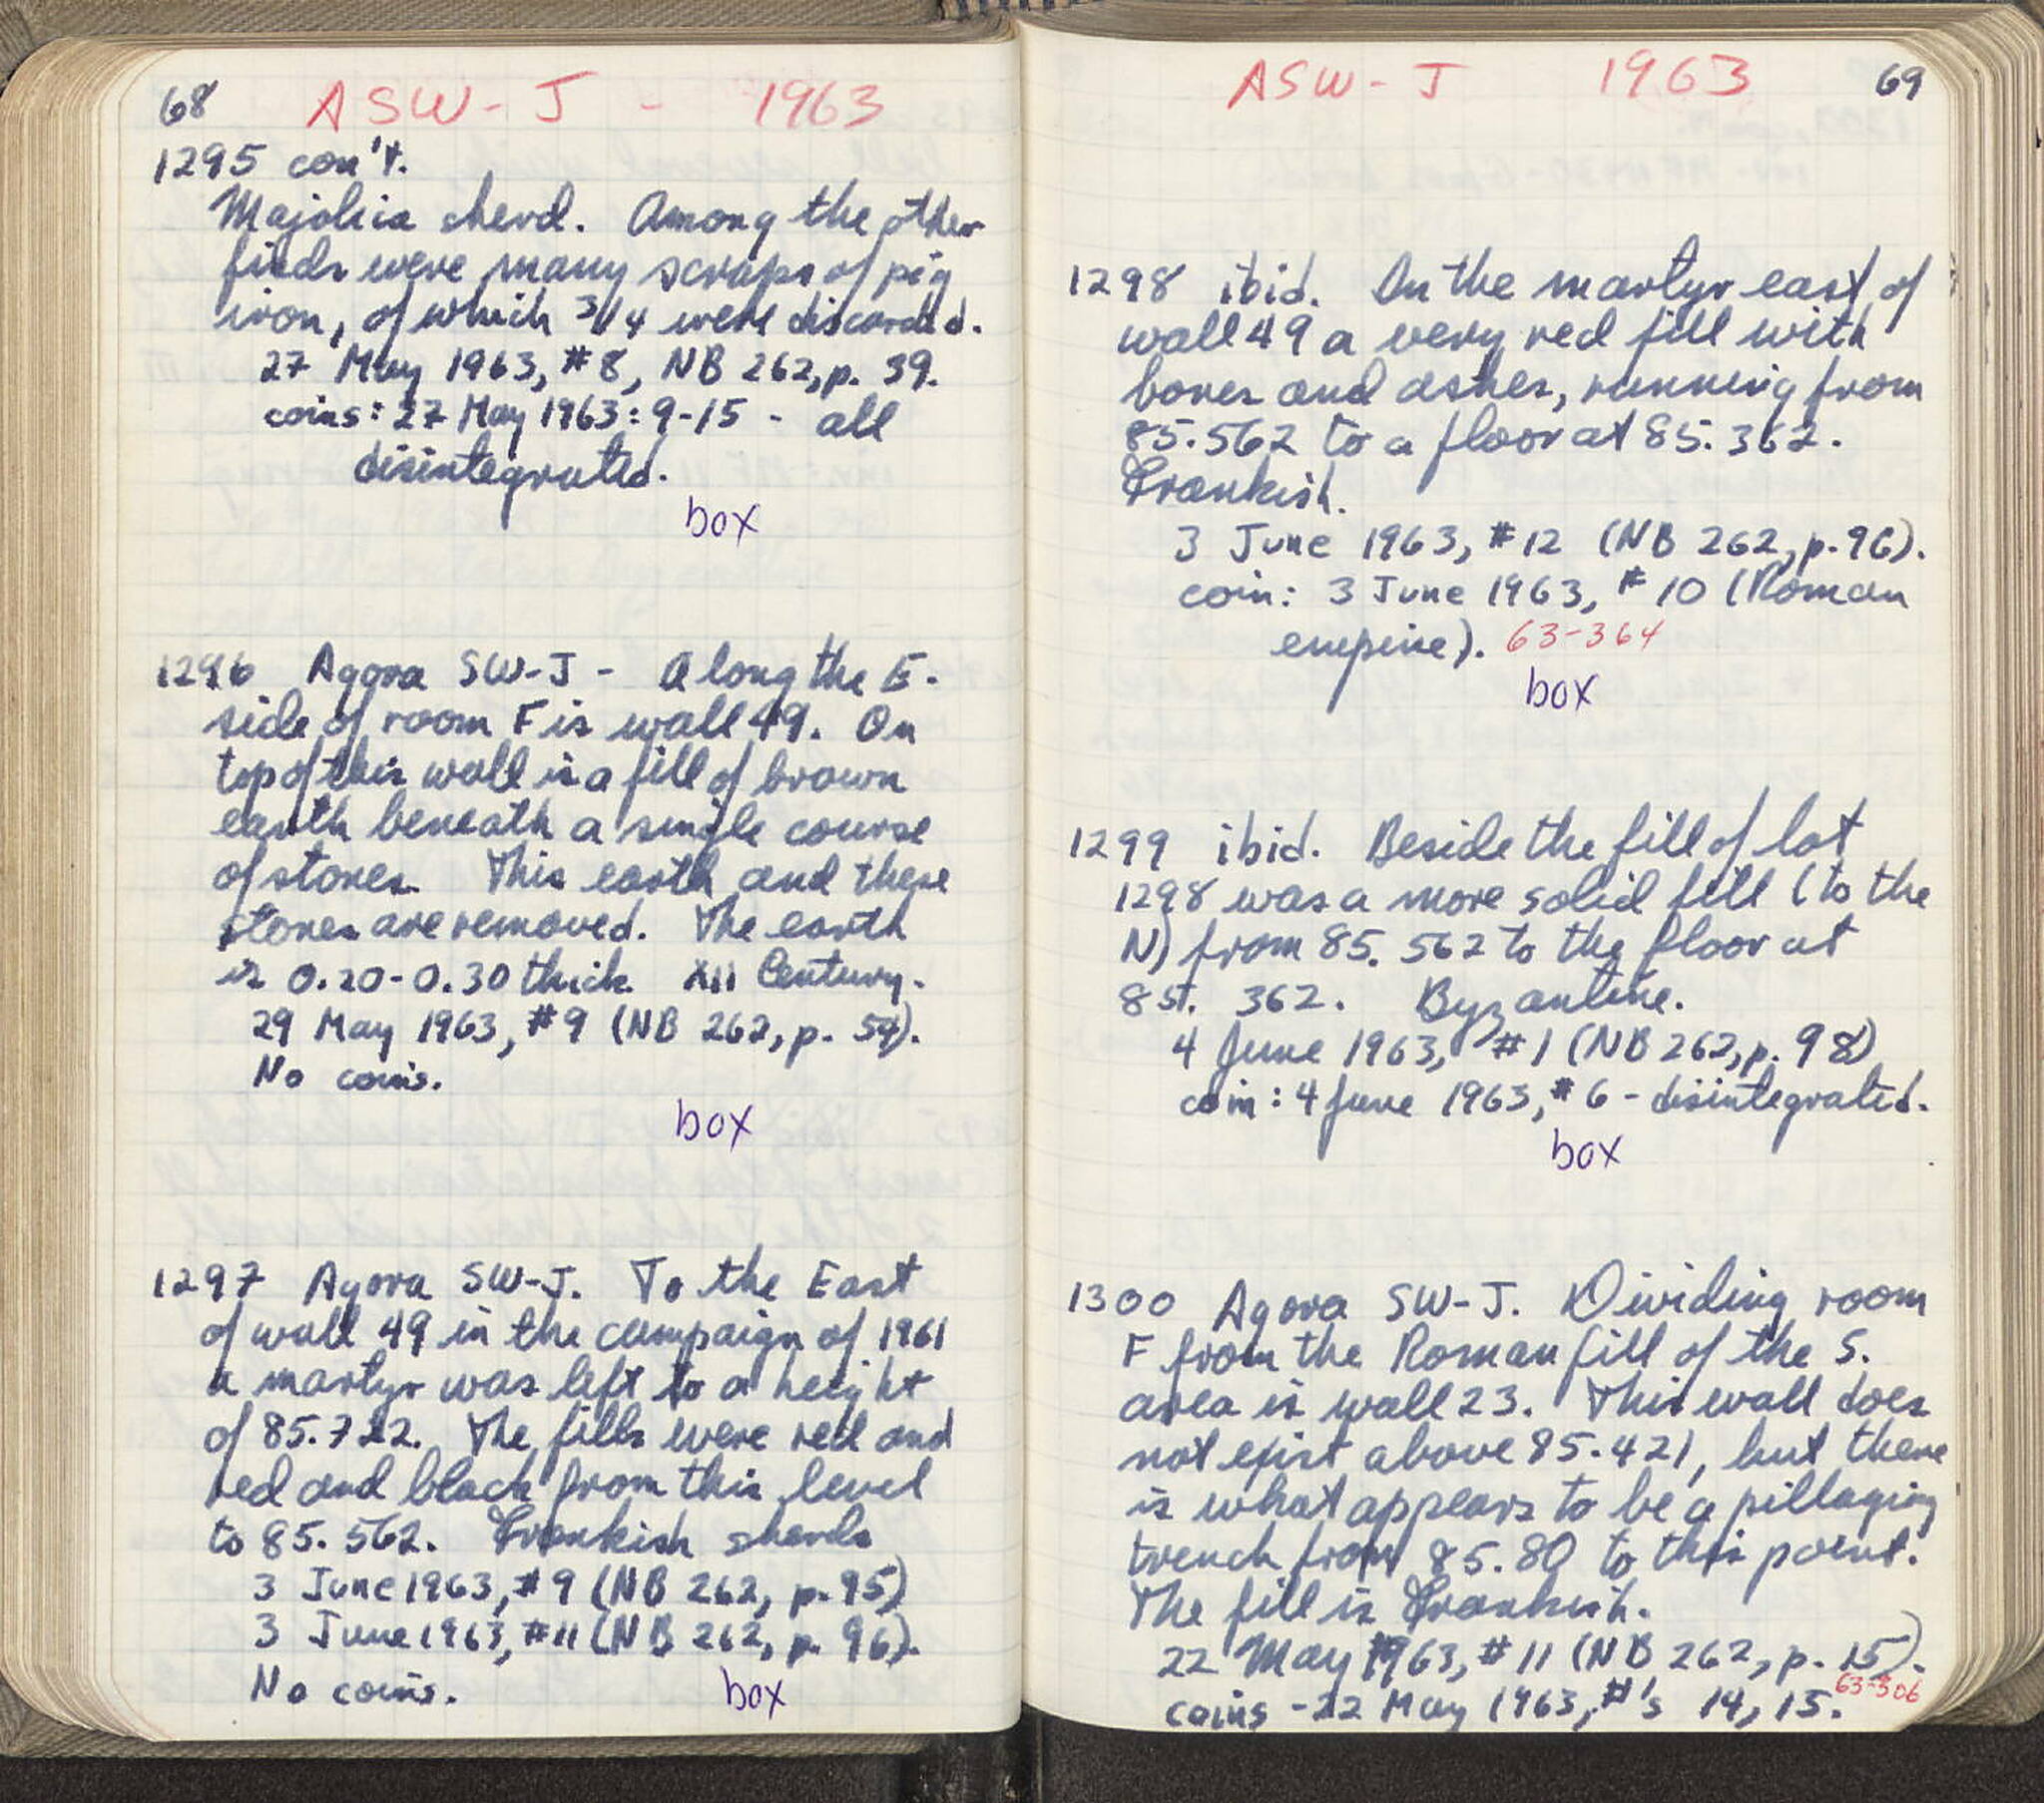 68 ASW-J - 1963
1295 con't.
Majolica sherd. Among the other
finds were many scraps of pig
iron, of which 3/4 were discarded.
27 May 1963, #8, NB 262, p. 39.
coins: 27 May 1963: 9-15 - all
disintegrated.
box
1296 Agora SW-J - Along the E.
side of room F is wall 49. On
top of this wall is a fill of brown
earth beneath a single course
of stones. This earth and these
stones are removed. The earth
is 0.20-0.30 thick. XII Century.
29 May 1963, #9 (NB 262, p. 54).
No coins.
box
1297 Agora SW-J. To the East
of wall 49 in the campaign of 1961
a martyr was left to a height
of 85.722. The fills were red and
red and black from this level
to 85.562. Frankish sherds
3 June 1963, #9 (NB 262, p. 95)
3 June 1963, #11 (NB 262, p. 96).
No coins.
box
ASW-J 1963 69
1298 ibid. In the martyr east of
wall 49 a very red fill with
bones and ashes, running from
85.562 to a floor at 85.362.
Frankish.
3 June 1963, #12 (NB 262, p. 96).
coin: 3 June 1963, #10 (Roman
empire). 63-364
box
1299 ibid. Beside the fill of lot
1298 was a more solid fill (to the
N) from 85.562 to the floor at
85.362. Byzantine.
4 June 1963, #1 (NB 262, p. 98)
coin: 4 June 1963, #6 - disintegrated.
box
1300 Agora SW-J. Dividing room
F from the Roman fill of the S.
area is wall 23. This wall does
not exist above 85.421, but there
is what appears to be a pillaging
trench from 85.80 to this point.
The fill is Frankish.
22 May 1963, #11 (NB 262, p. 15).
coins - 22 May 1963, #'s 14, 15. 63-306